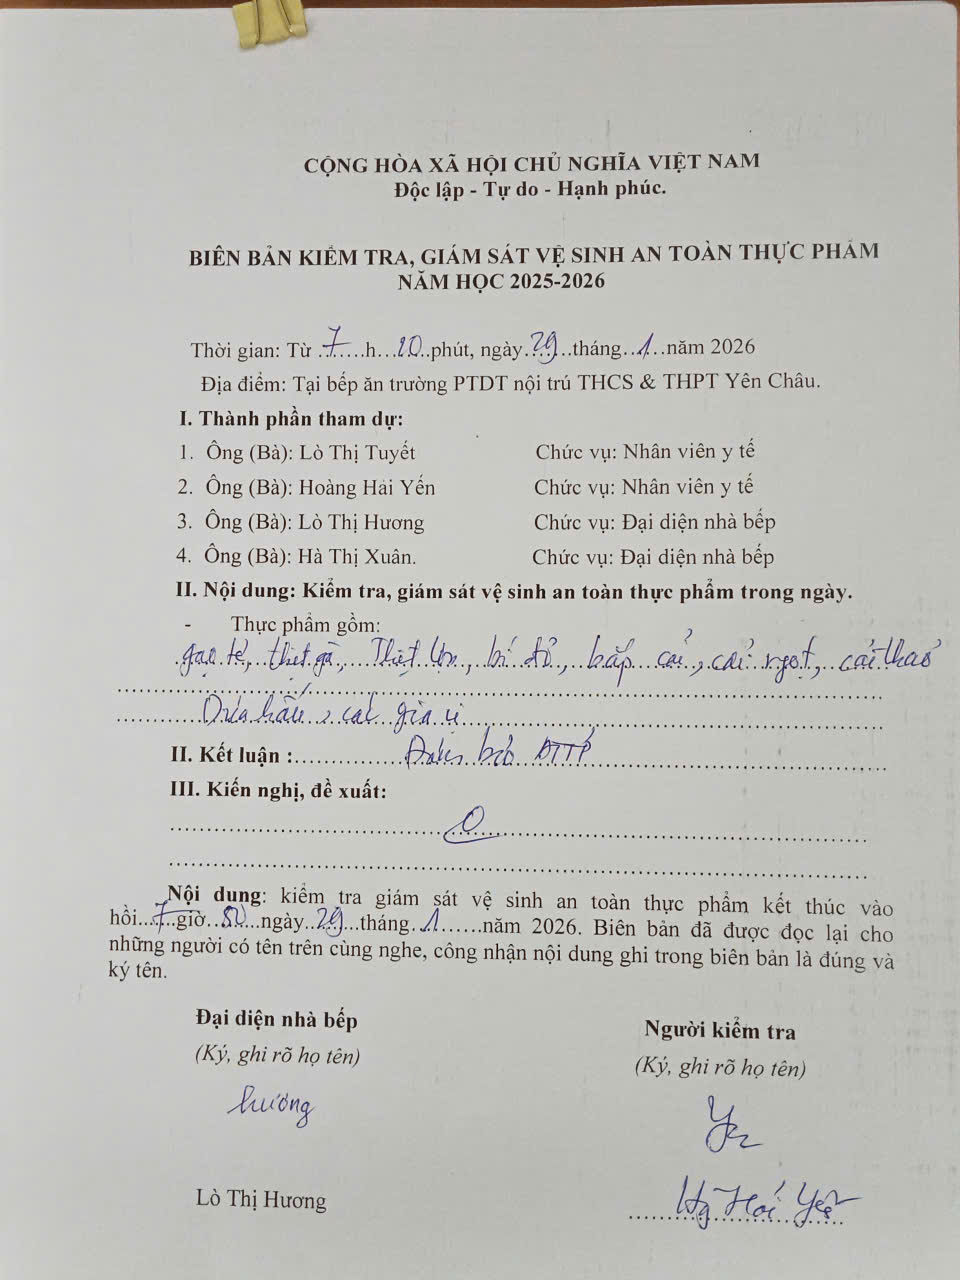 CỘNG HÒA XÃ HỘI CHỦ NGHĨA VIỆT NAM
Độc lập - Tự do - Hạnh phúc.
BIÊN BẢN KIỂM TRA, GIÁM SÁT VỆ SINH AN TOÀN THỰC PHẨM
NĂM HỌC 2025-2026
Thời gian: Từ 7 h 20 phút, ngày 29 tháng 1 năm 2026
Địa điểm: Tại bếp ăn trường PTDT nội trú THCS & THPT Yên Châu.
I. Thành phần tham dự:
1. Ông (Bà): Lò Thị Tuyết Chức vụ: Nhân viên y tế
2. Ông (Bà): Hoàng Hải Yến Chức vụ: Nhân viên y tế
3. Ông (Bà): Lò Thị Hương Chức vụ: Đại diện nhà bếp
4. Ông (Bà): Hà Thị Xuân. Chức vụ: Đại diện nhà bếp
II. Nội dung: Kiểm tra, giám sát vệ sinh an toàn thực phẩm trong ngày.
- Thực phẩm gồm:
gạo tẻ, thịt gà, Thịt lợn, bí đỏ, bắp cải, cải ngọt, cải thảo
Dưa hấu, các gia vị
II. Kết luận : Đảm bảo ATTP
III. Kiến nghị, đề xuất:
0
Nội dung: kiểm tra giám sát vệ sinh an toàn thực phẩm kết thúc vào
hồi 7 giờ 50 ngày 29 tháng 1 năm 2026. Biên bản đã được đọc lại cho
những người có tên trên cùng nghe, công nhận nội dung ghi trong biên bản là đúng và
ký tên.
Đại diện nhà bếp Người kiểm tra
(Ký, ghi rõ họ tên) (Ký, ghi rõ họ tên)
Hương
Lò Thị Hương Hg Hải Yến